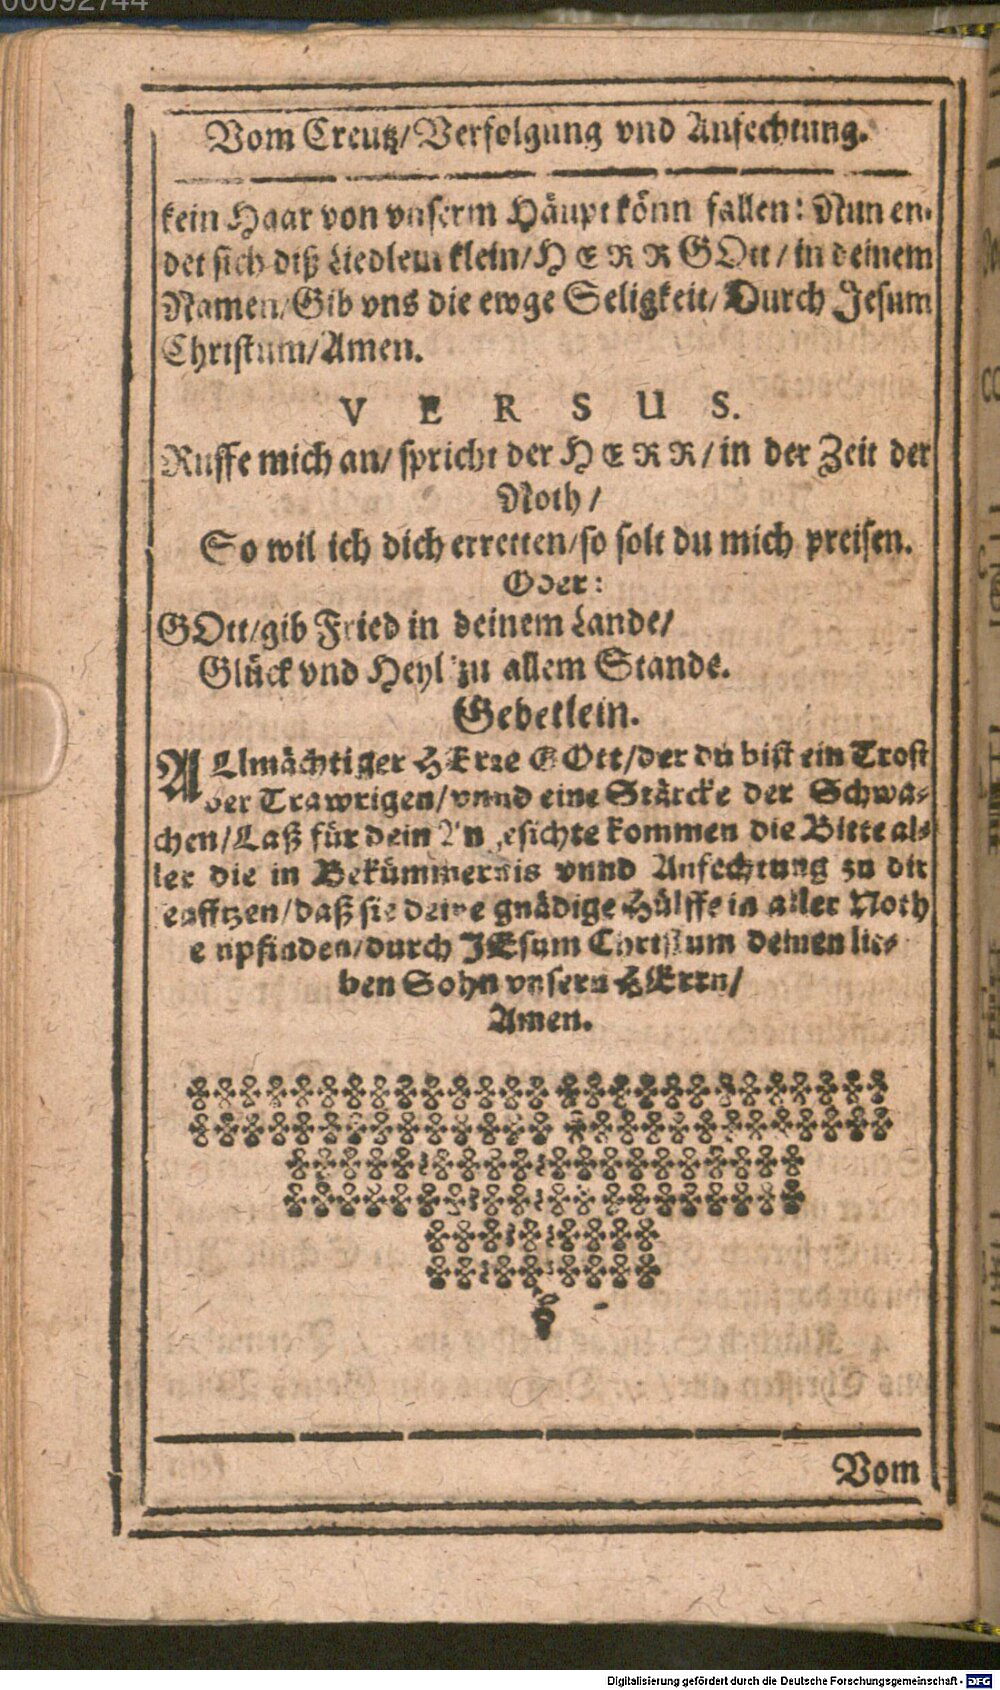 00092744
Vom Creutz/Verfolgung vnd Anfechtung.
kein Haar von vnserm Häupt könn fallen: Nun en-
det sich diß Liedlein klein/HERR GOtt/in deinem
Namen/Gib vns die ewge Seligkeit/Durch Jesum
Christum/Amen.
V E R S U S.
Ruffe mich an/ spricht der HERR/in der Zeit der
Noth/
So wil ich dich erretten/so solt du mich preisen.
Oder:
GOtt/gib Fried in deinem Lande/
Glück vnd Heyl zu allem Stande.
Gebetlein.
ALlmächtiger HErre GOtt/der du bist ein Trost
der Trawrigen/vnnd eine Stärcke der Schwa-
chen/Laß für dein Angesichte kommen die Bitte al-
ler die in Bekümmernis vnnd Anfechtung zu dir
seafftzen/daß sie deine gnädige Hülffe in aller Noth
empfinden/durch JEsum Christum deinen lie-
ben Sohn vnsern HErrn/
Amen.
Vom
Digitalisierung gefördert durch die Deutsche Forschungsgemeinschaft - DFG